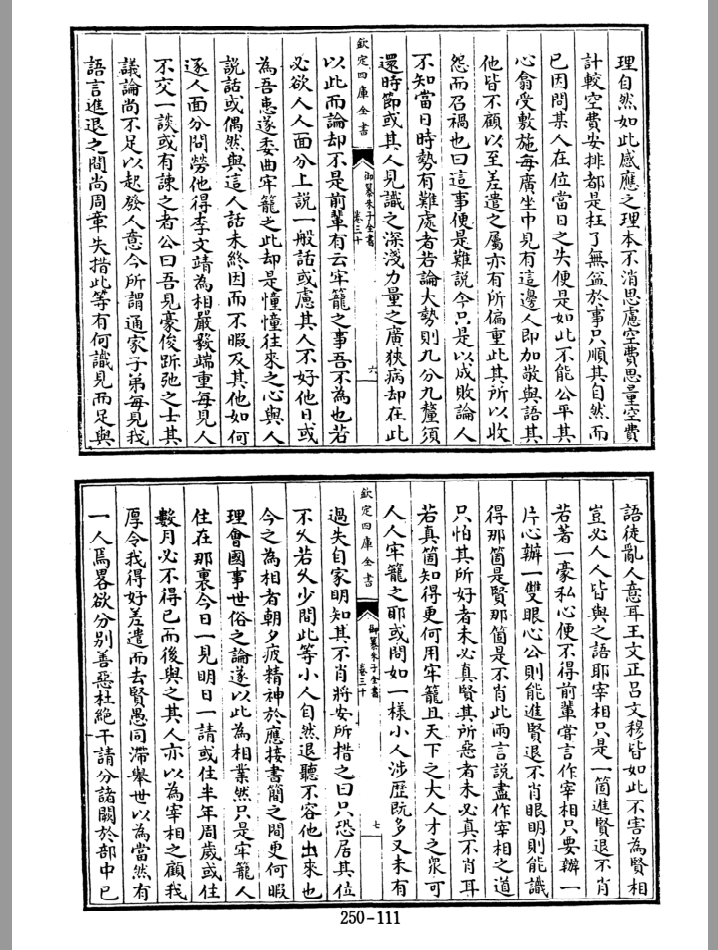 理自然如此感應之理本不消思慮空費思量空費
計較空費安排都是枉了無益於事只順其自然而
已因問某人在位當日之失便是如此不能公平其
心翕受敷施每廣坐中見有這邊人即加敬與語其
他皆不顧以至差遣之屬亦有所偏重此其所以收
怨而召禍也曰這事便是難說今只是以成敗論人
不知當日時勢有難處者若論大勢則九分九釐須
還時節或其人見識之深淺力量之廣狹病却在此
欽定四庫全書
御纂朱子全書
卷三十
六
以此而論却不是前輩有云牢籠之事吾不為也若
必欲人人面分上說一般話或慮其人不好他日或
為吾患遂委曲牢籠之此却是憧憧往來之心與人
說話或偶然與這人話未終因而不暇及其他如何
逐人面分問勞他得李文靖為相嚴毅端重每見人
不交一談或有諫之者公曰吾見豪俊跅弛之士其
議論尚不足以起發人意今所謂通家子弟每見我
語言進退之間尚周章失措此等有何識見而足與
語徒亂人意耳王文正吕文穆皆如此不害為賢相
豈必人人皆與之語耶宰相只是一箇進賢退不肖
若著一豪私心便不得前輩嘗言作宰相只要辦一
片心辦一雙眼心公則能進賢退不肖眼明則能識
得那箇是賢那箇是不肖此兩言說盡作宰相之道
只怕其所好者未必真賢其所惡者未必真不肖耳
若真箇知得更何用牢籠且天下之大人才之衆可
人人牢籠之耶或問如一様小人涉歷既多又未有
欽定四庫全書
御纂朱子全書
卷三十
七
過失自家明知其不肖將安所措之曰只恐居其位
不久若久少間此等小人自然退聽不容他出來也
今之為相者朝夕疲精神於應接書簡之間更何暇
理會國事世俗之論遂以此為相業然只是牢籠人
住在那裏今日一見明日一請或住半年周歲或住
數月必不得已而後與之其人亦以為宰相之顧我
厚令我得好差遣而去賢愚同滯舉世以為當然有
一人焉畧欲分别善惡杜絶干請分諸闕於部中已
250-111